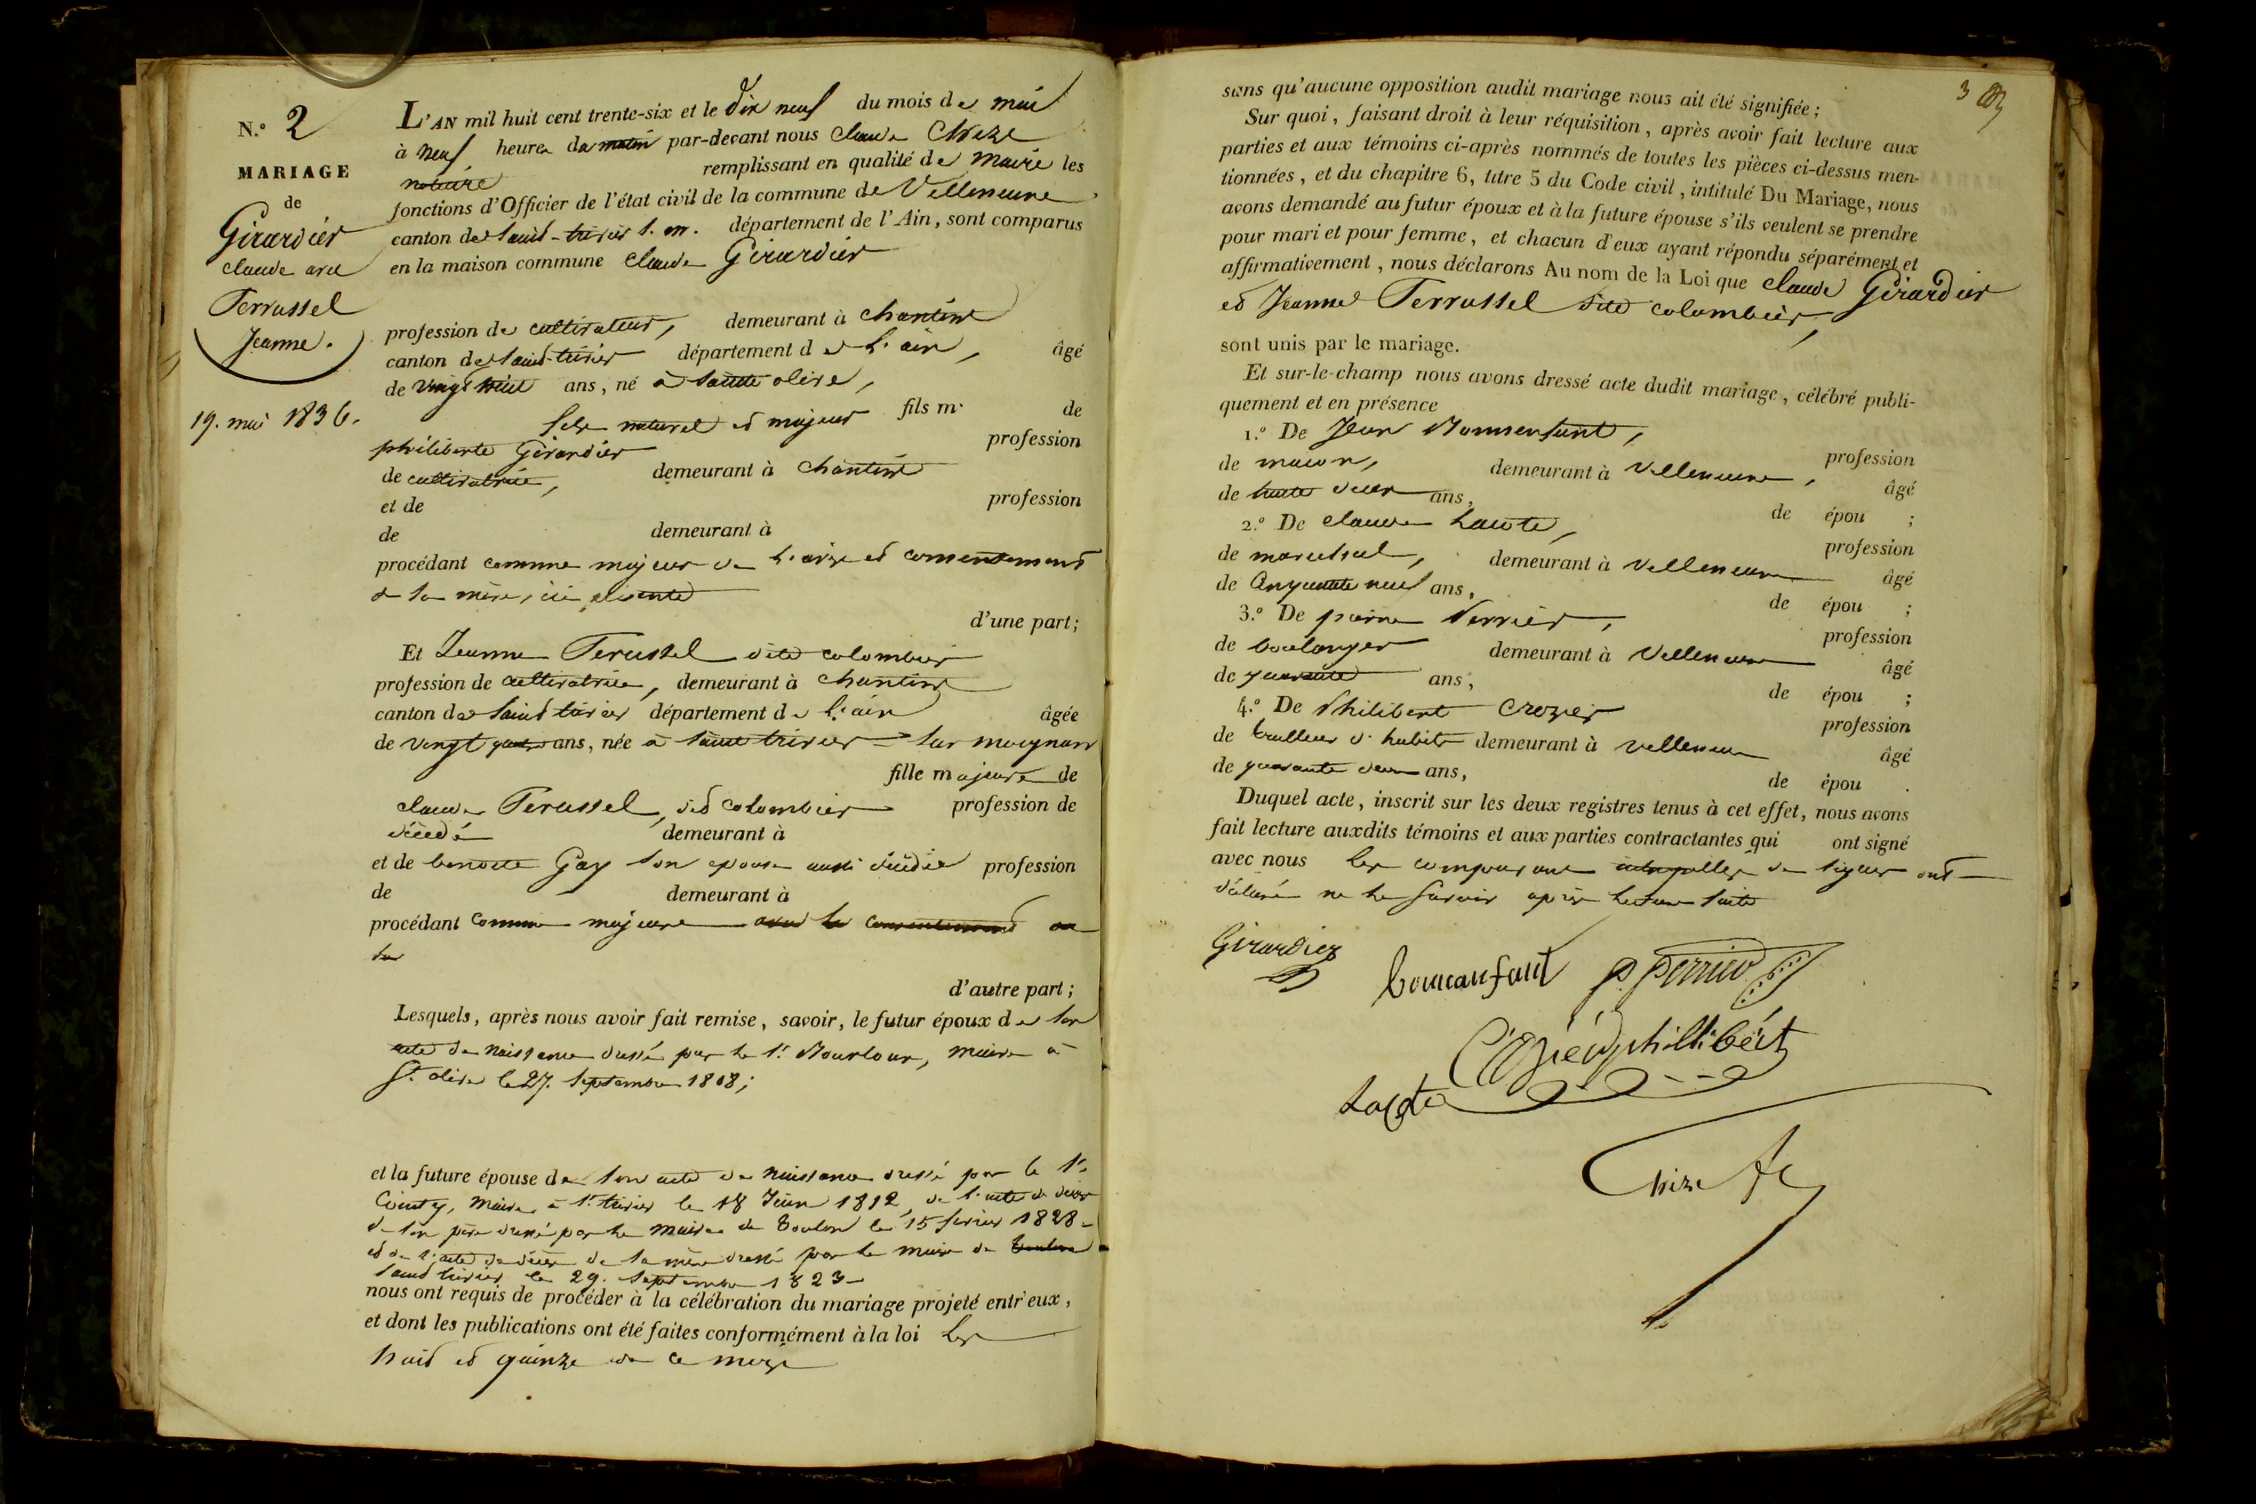 N.º 2
MARIAGE
de
Girardier
claude avec
Terrassel
Jeanne.
19. mai 1836.
L'AN mil huit cent trente-six et le dix neuf du mois de mai
à neuf heures du matin par-devant nous claude Chize
notaire remplissant en qualité de maire les
fonctions d'Officier de l'état civil de la commune de Villeneuve
canton de Saint-trivier s. m. département de l'Ain, sont comparus
en la maison commune claude Girardier
profession de cultivateur, demeurant à chanteins
canton de Saint-trivier département de l'ain, âgé
de vingt huit ans, né à sainte olive,
fils m. de
fils naturel et majeur
philiberte Girardier profession
de cultivatrice, demeurant à chanteins
et de profession
de demeurant à
procédant comme majeur de l'avis et consentement
de sa mère, ici présente
d'une part;
Et Jeanne Terassel dite colombier
profession de cultivatrice, demeurant à chanteins
canton de Saint trivier département de l'ain âgée
de vingt quatre ans, née à saint trivier sur moignans
fille majeure de
claude Terassel, dit colombier profession de
décédé demeurant à
et de benoite Gay son epouse aussi décédée profession
de demeurant à
procédant comme majeure avec le consentement de
d'autre part;
Lesquels, après nous avoir fait remise, savoir, le futur époux de son
acte de naissance dressé par le sr. Mourlour, maire à
St. olive le 27. septembre 1808;
et la future épouse de son acte de naissance dressé par le sr.
maire à st. trivier le 18 Juin 1812, de l'acte de décès
de son père dressé par le maire de Toulon le 15 février 1828
et de l'acte de décès de sa mère dressé par le maire de
saint trivier le 29. septembre 1823
nous ont requis de procéder à la célébration du mariage projeté entr'eux,
et dont les publications ont été faites conformément à la loi les
huit et quinze de ce mois
3
sans qu'aucune opposition audit mariage nous ait été signifiée;
Sur quoi, faisant droit à leur réquisition, après avoir fait lecture aux
parties et aux témoins ci-après nommés de toutes les pièces ci-dessus men-
tionnées, et du chapitre 6, titre 5 du Code civil, intitulé Du Mariage, nous
avons demandé au futur époux et à la future épouse s'ils veulent se prendre
pour mari et pour femme, et chacun d'eux ayant répondu séparément et
affirmativement, nous déclarons Au nom de la Loi que claude Girardier
et Jeanne Terrassel dite colombier,
sont unis par le mariage.
Et sur-le-champ nous avons dressé acte dudit mariage, célébré publi-
quement et en présence
1.º De Jean Monnenfant, profession
de macon, demeurant à Villeneuve, âgé
de trente deux ans, de épou ;
2.º De claude Lacote, profession
de marechal, demeurant à Villeneuve âgé
de Cinquante neuf ans, de épou ;
3.º De pierre Perrier, profession
de boulanger demeurant à Villeneuve âgé
de quarante ans, de épou ;
4.º De Philibert Crozier profession
de tailleur d'habits demeurant à villeneuve âgé
de quarante deux ans, de épou .
Duquel acte, inscrit sur les deux registres tenus à cet effet, nous avons
fait lecture auxdits témoins et aux parties contractantes qui ont signé
avec nous les comparans interpellés de signer ont
déclaré ne le savoir après lecture faite
Girardier
bonnanfant P perrier
Crozier phillibért
Lacote
Chize